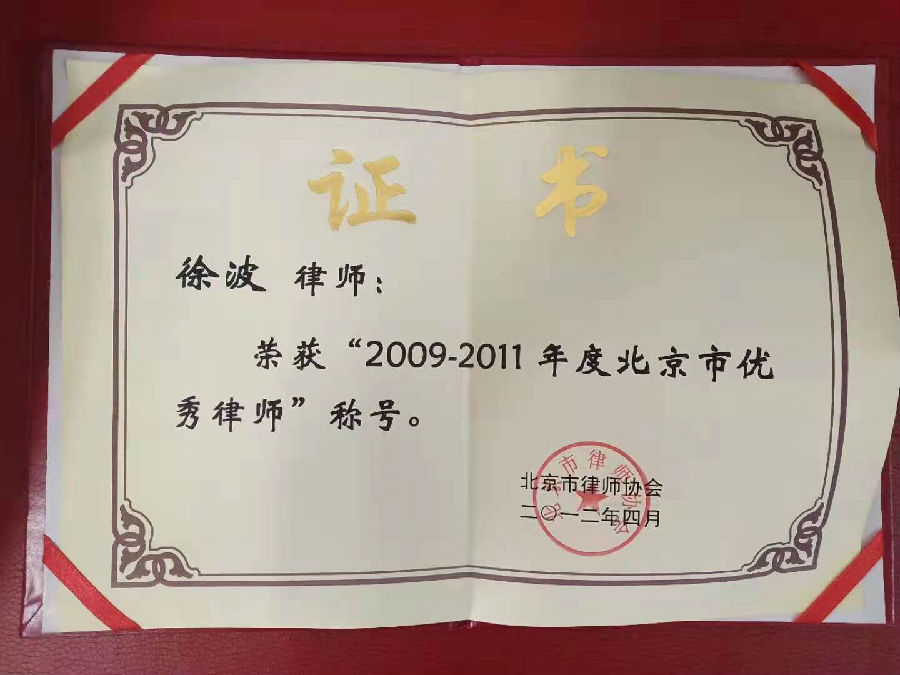 证 书
徐波 律师：
荣获“2009-2011年度北京市优
秀律师”称号。
北京市律师协会
二〇一二年四月
北京市律师协会